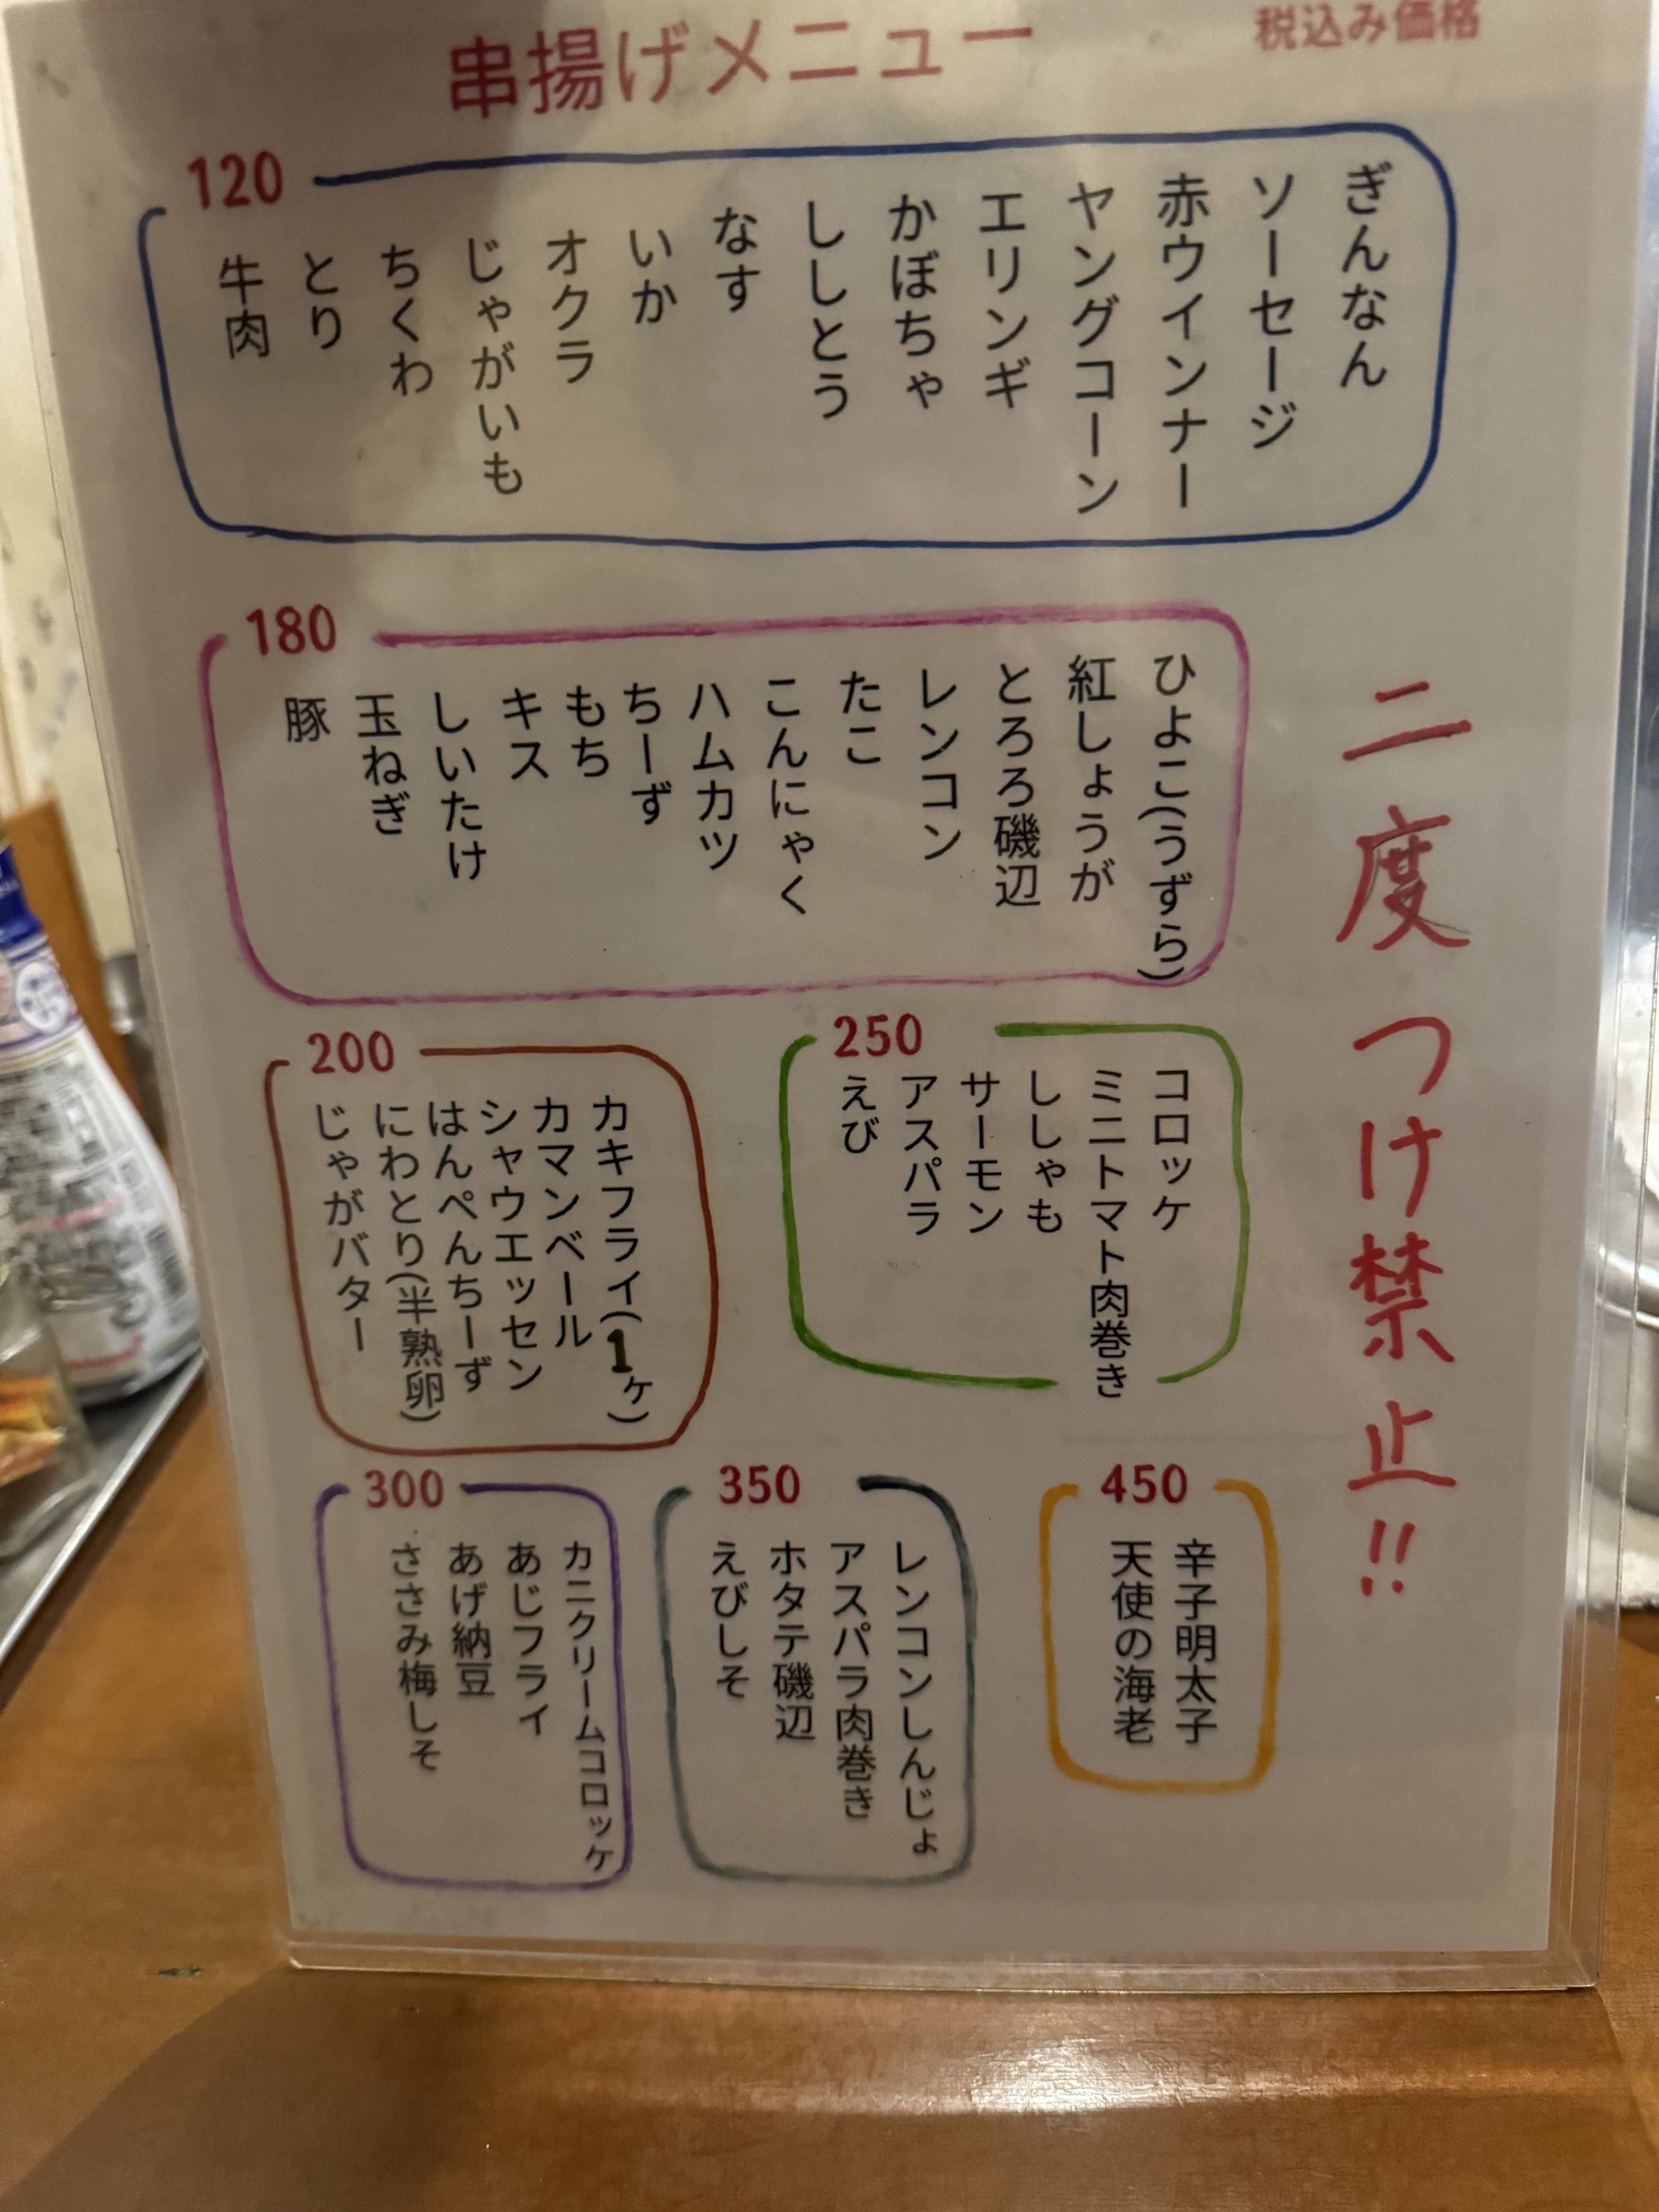 串揚げメニュー
税込み価格
120
ぎんなん
ソーセージ
赤ウインナー
ヤングコーン
エリンギ
かぼちゃ
ししとう
なす
いか
オクラ
じゃがいも
ちくわ
とり
牛肉
二度つけ禁止!!
180
ひよこ(うずら)
紅しょうが
とろろ磯辺
レンコン
たこ
こんにゃく
ハムカツ
ちーず
もち
キス
しいたけ
玉ねぎ
豚
250
コロッケ
ミニトマト肉巻き
ししゃも
サーモン
アスパラ
えび
200
カキフライ(1ヶ)
カマンベール
シャウエッセン
はんぺんちーず
にわとり(半熟卵)
じゃがバター
450
辛子明太子
天使の海老
350
レンコンしんじょ
アスパラ肉巻き
ホタテ磯辺
えびしそ
300
カニクリームコロッケ
あじフライ
あげ納豆
ささみ梅しそ